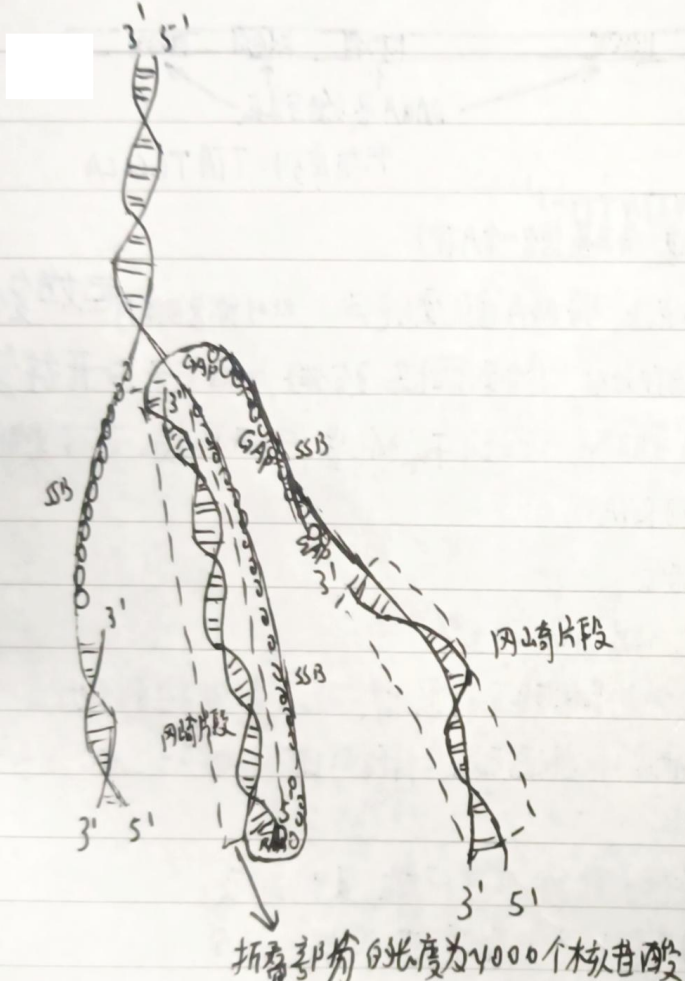 3' 5'
GAP
3'
GAP
SSB
SSB
GAP
3'
3'
冈崎片段
SSB
冈崎片段
5'
3' 5'
3' 5'
折叠部分的长度为~1000个核苷酸